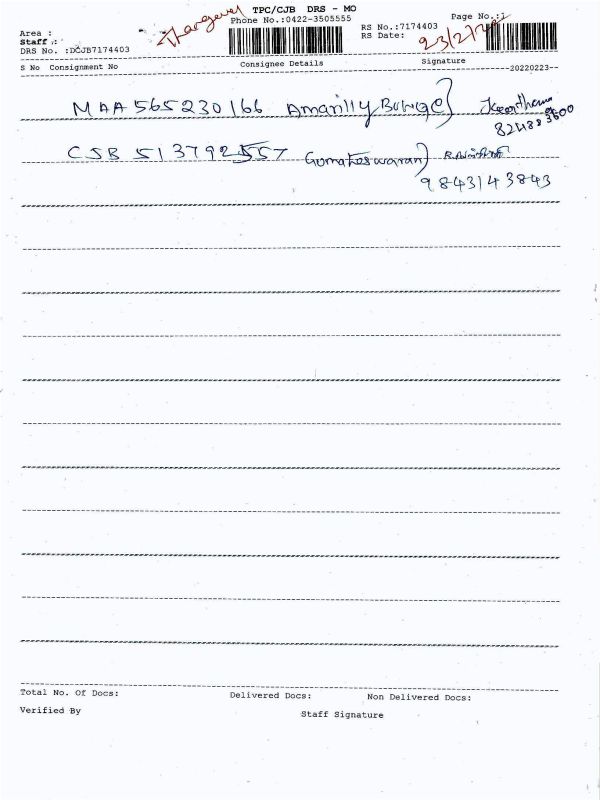 Thangavel TPC/CJB DRS - MO
Phone No.:0422-3505555 Page No.:1
Area : RS No.:7174403
Staff : RS Date: 23/2/22
DRS No. :DCJB7174403
S No Consignment No Consignee Details Signature
--20220223--
MAA 565230166 Amarilly Bobige Keerthana
CJB 513792557 Gomateswaran
9843143843
Total No. Of Docs: Delivered Docs: Non Delivered Docs:
Verified By Staff Signature